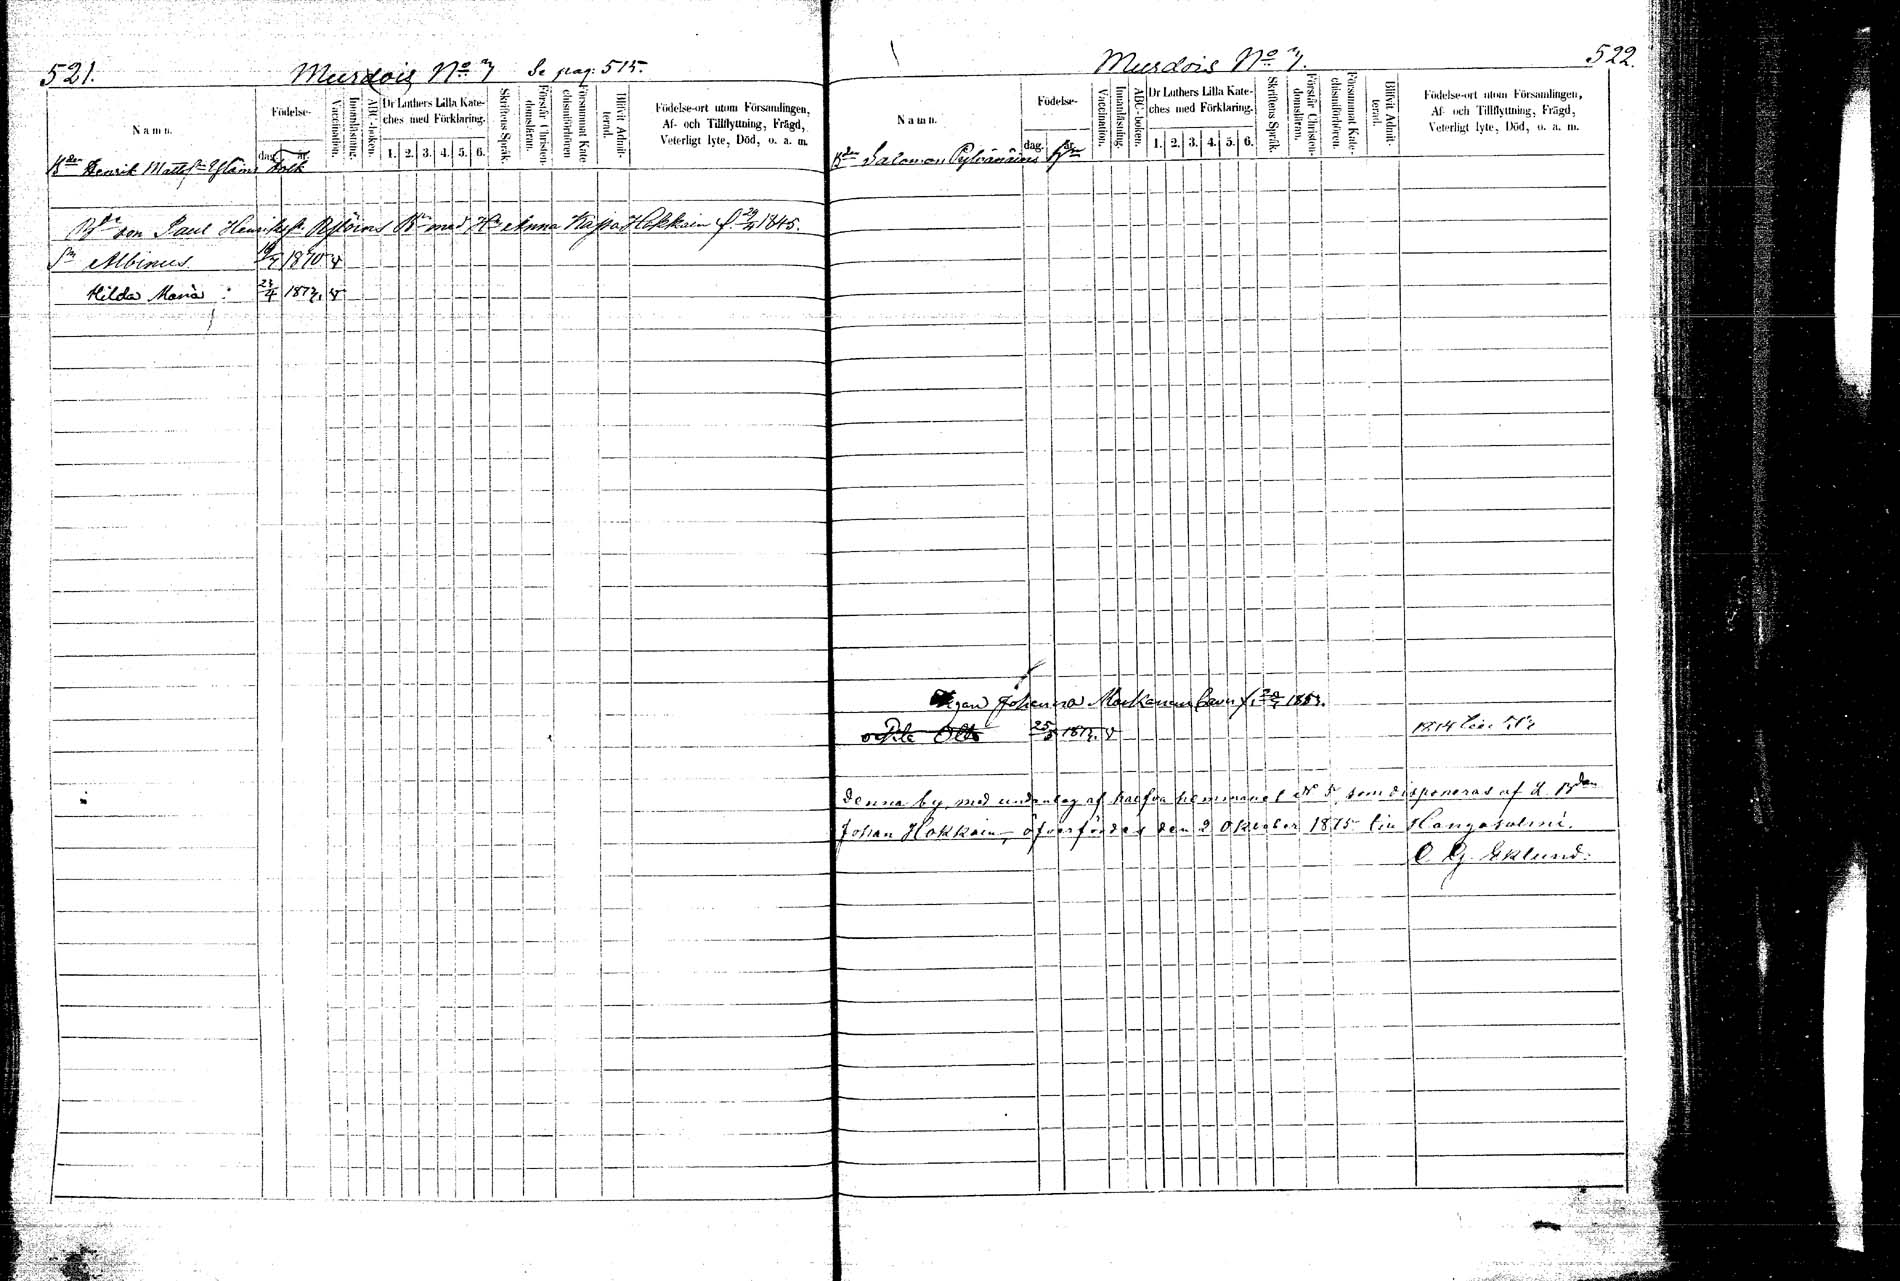 521.
Murdois No 7 Se pag: 515.
Namn.
Födelse-
dag. år.
Vaccination.
Innanläsning.
ABC-boken.
Dr Luthers Lilla Kate-
ches med Förklaring.
1. 2. 3. 4. 5. 6.
Skriftens Språk.
Förstår Christen-
domsläran.
Försummat Kate-
chismiförhören
Blifvit Admit-
terad.
Födelse-ort utom Församlingen,
Af- och Tillflyttning, Frägd,
Veterligt lyte, Död, o. a. m.
Bdn Henrik Mattsn folk
son Paul med Anna Kajsa Hokkain f. 29/4 1845.
Sn Albinus 1870 v
Hilda Maria 23/4 187 v
522.
Murdois No 7.
Namn.
Födelse-
dag. år.
Vaccination.
Innanläsning.
ABC-boken.
Dr Luthers Lilla Kate-
ches med Förklaring.
1. 2. 3. 4. 5. 6.
Skriftens Språk.
Förstår Christen-
domsläran.
Försummat Kate-
chismiförhören.
Blifvit Admit-
terad.
Födelse-ort utom Församlingen,
Af- och Tillflyttning, Frägd,
Veterligt lyte, Död, o. a. m.
Bdn Salomon Pylvänäins
Johanna
Otto 25/5 187 v
Denna by, med undantag af halfva hemmanet No 5, som disponeras af d. Bdn
Johan Hokkain, öfverfördes den 2 Oktober 1875 till Hangasalmi.
C G. Eklund.